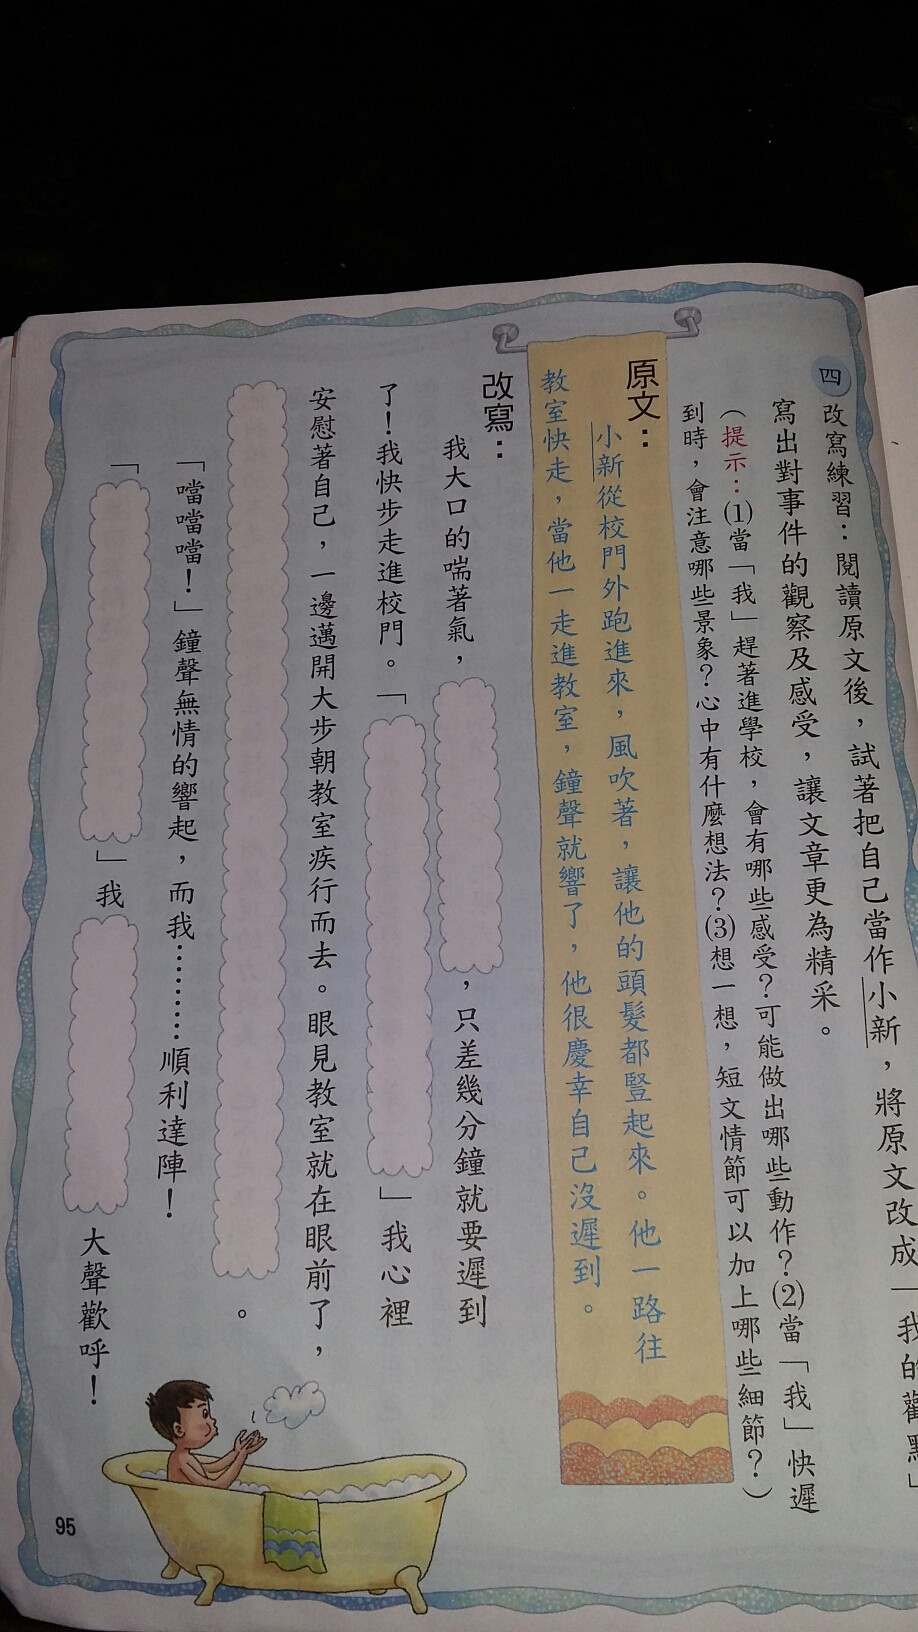 四 改寫練習：閱讀原文後，試著把自己當作小新，將原文改成「我的觀點」
寫出對事件的觀察及感受，讓文章更為精采。
（提示：⑴當「我」趕著進學校，會有哪些感受？可能做出哪些動作？⑵當「我」快遲
到時，會注意哪些景象？心中有什麼想法？⑶想一想，短文情節可以加上哪些細節？）
原文：
小新從校門外跑進來，風吹著，讓他的頭髮都豎起來。他一路往
教室快走，當他一走進教室，鐘聲就響了，他很慶幸自己沒遲到。
改寫：
我大口的喘著氣，，只差幾分鐘就要遲到
了！我快步走進校門。「」我心裡
安慰著自己，一邊邁開大步朝教室疾行而去。眼見教室就在眼前了，
。
「噹噹噹！」鐘聲無情的響起，而我………順利達陣！
「」我大聲歡呼！
95